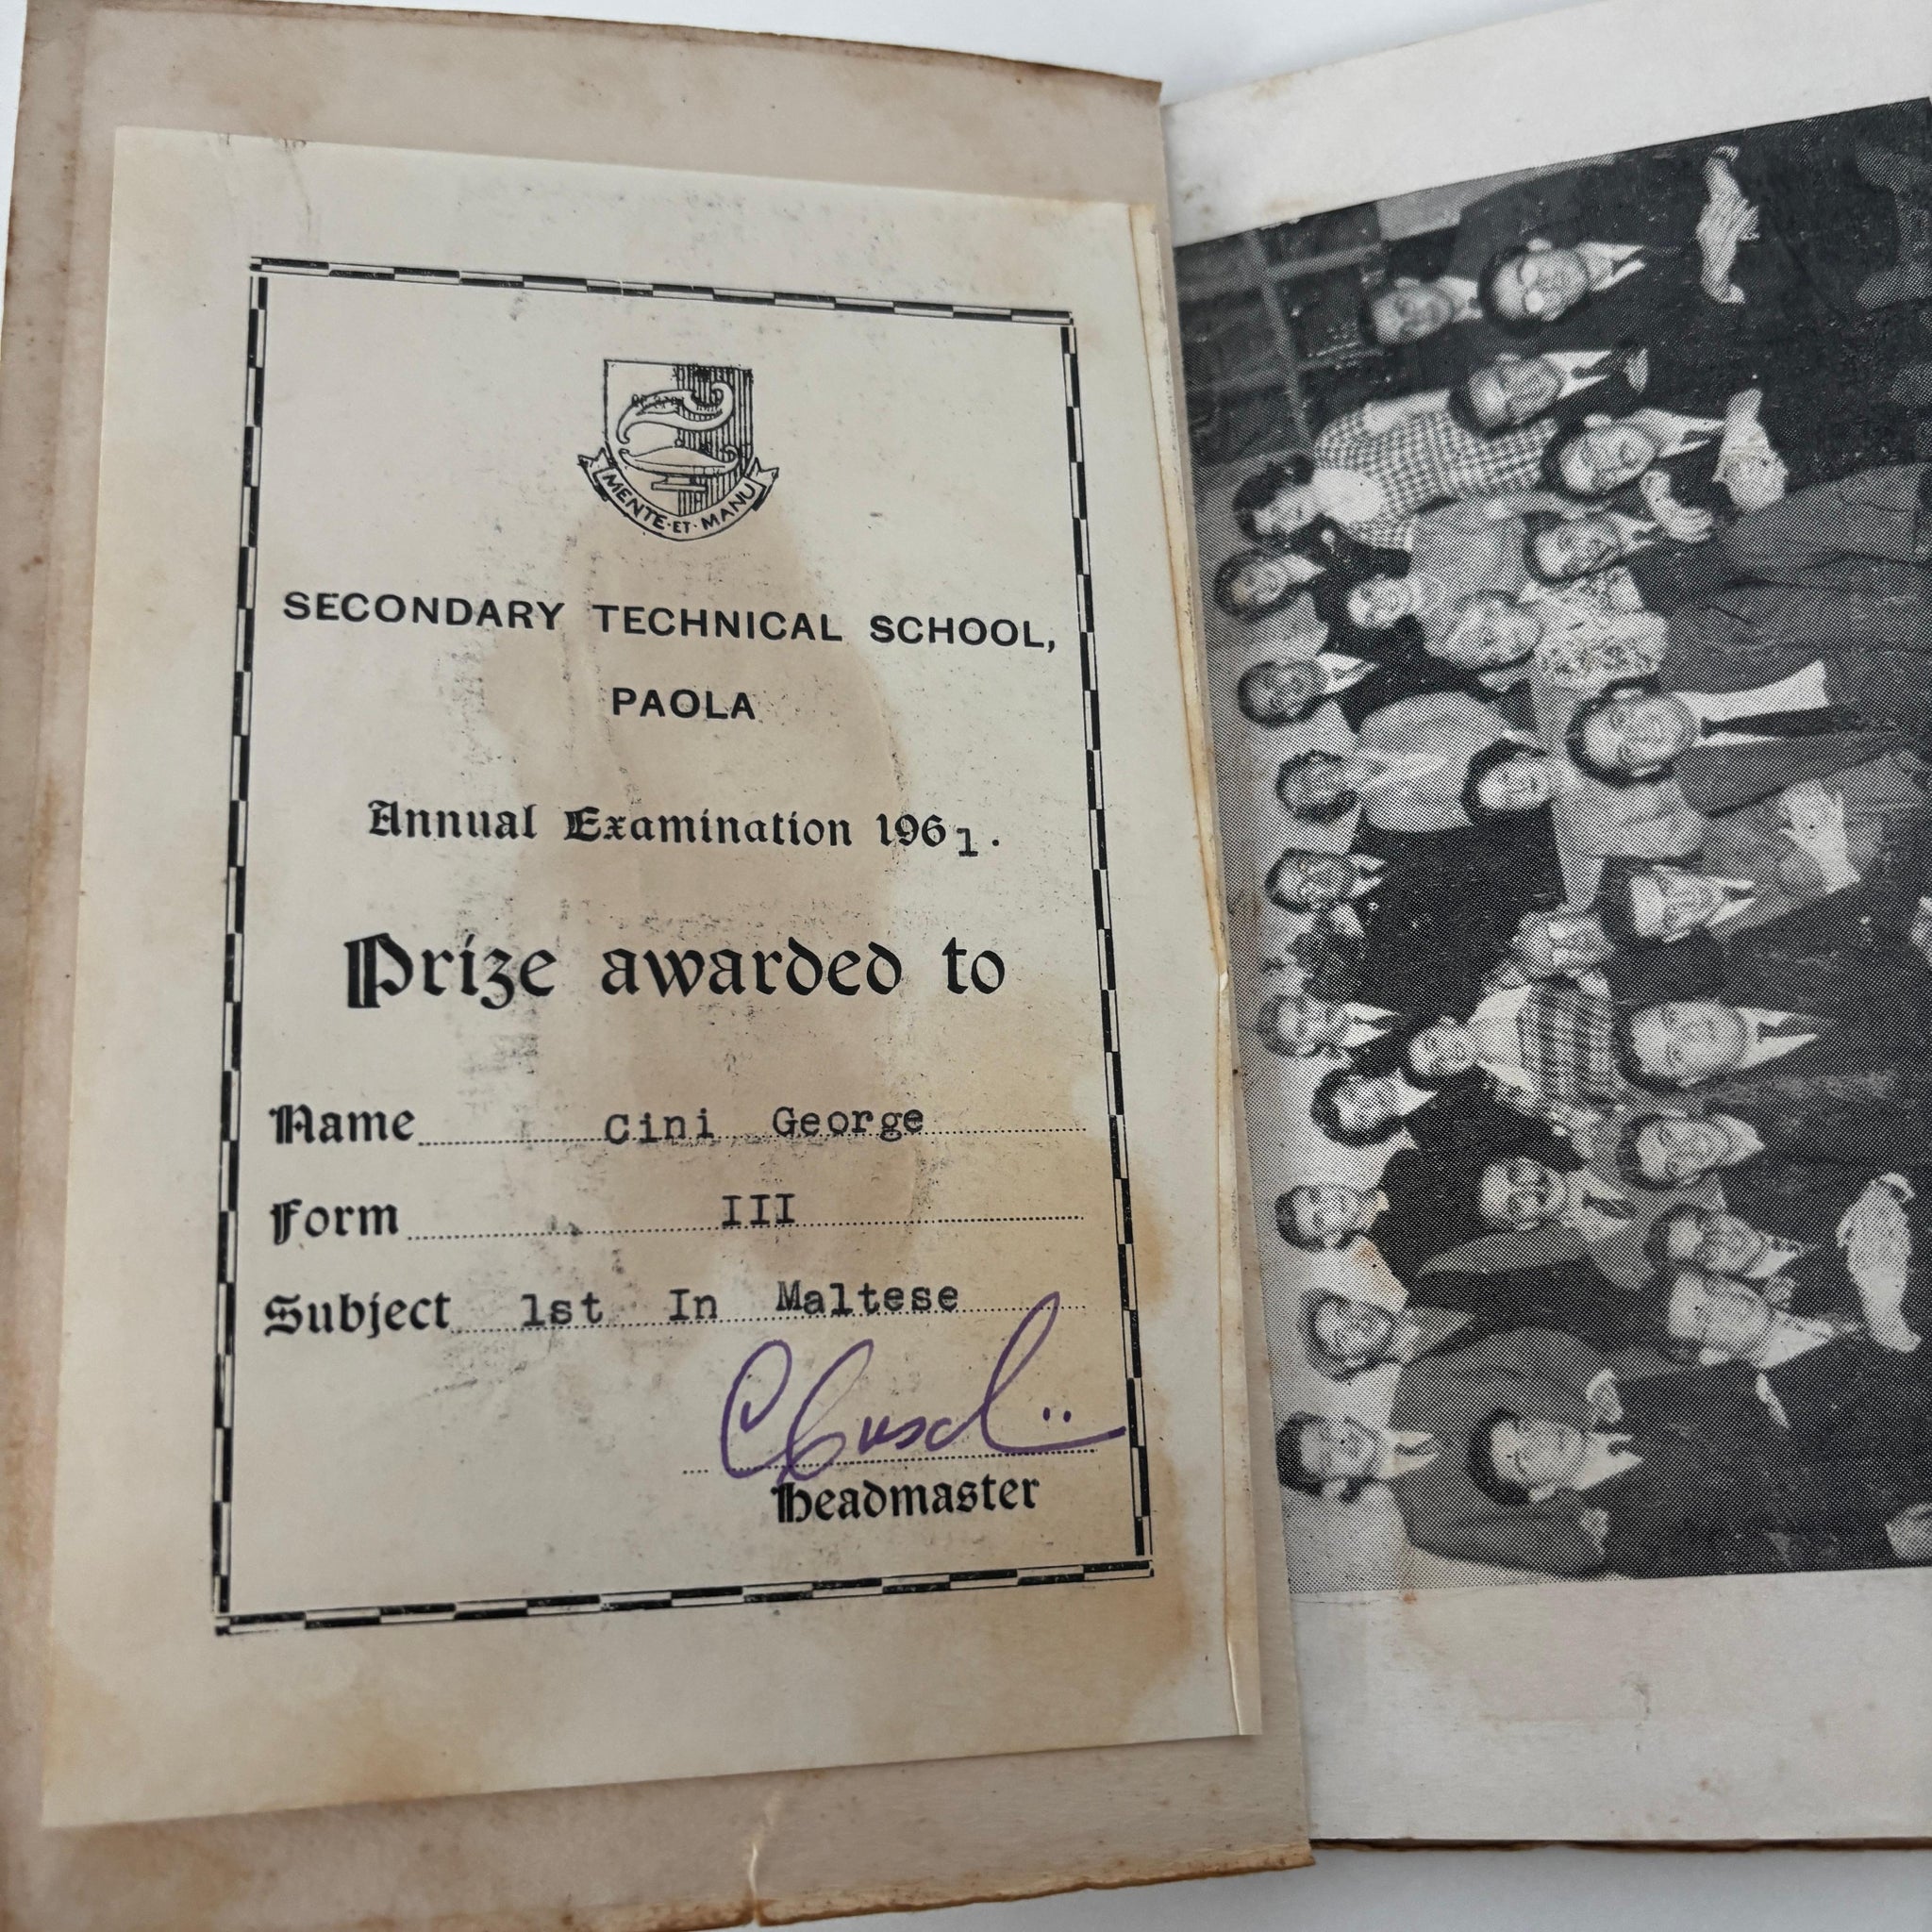 MENTE · ET · MANU
SECONDARY TECHNICAL SCHOOL,
PAOLA
Annual Examination 1961.
Prize awarded to
Name Cini George
Form III
Subject 1st In Maltese
Headmaster